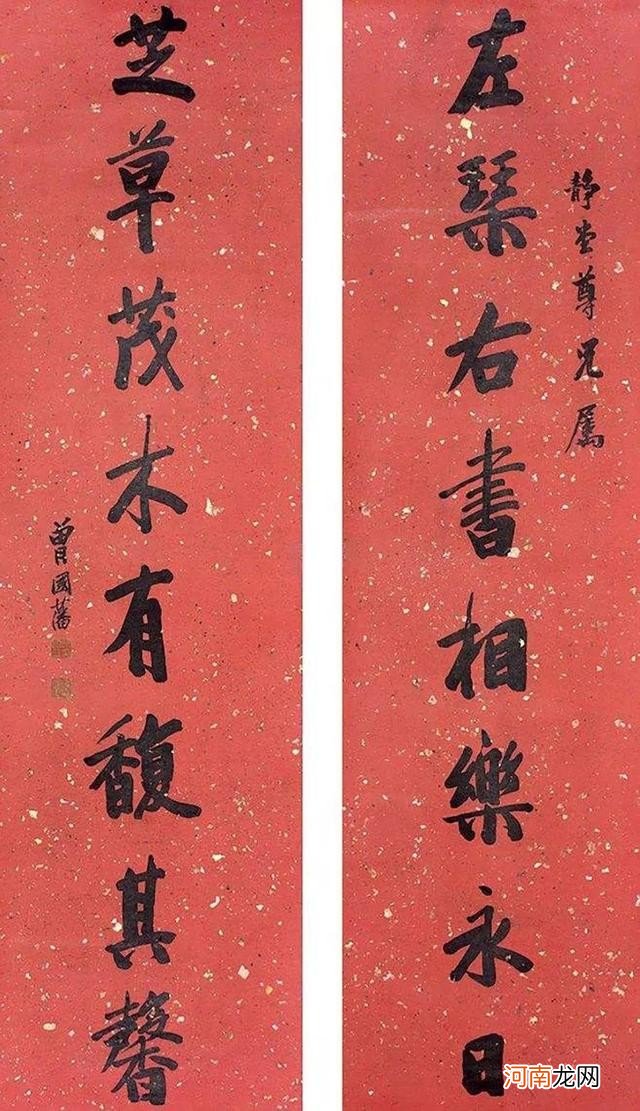 靜盦尊兄屬
左琴右書相樂永日
芝草茂木有馥其馨
曾國藩
河南龙网